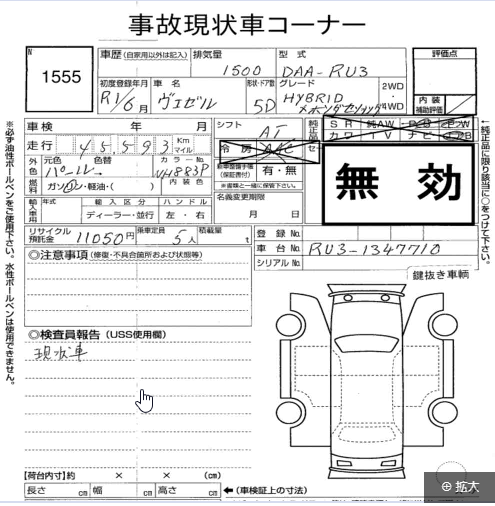 事故現状車コーナー
N
1555
車歴 (自家用以外は記入)
排気量
1500
型式
DAA-RU3
評価点
初度登録年月
R1/6月
車名
ヴェゼル
形状・ドア数
5D
グレード
HYBRID
ホンダセンシング
2WD・4WD
内装
補助評価
車検 年 月
シフト
AT
純正品
走行 45,593 Km マイル
冷房
外色
元色
パール
色替
カラーNo.
NH883P
内装色
燃料
ガソリン・軽油・( )
(保証書付)
有・無
※書類と一緒に保管下さい。
無効
輸入車用
年式
輸入区分
ディーラー・並行
ハンドル
左・右
名義変更期限
月 日
リサイクル預託金
11050円
乗車定員
5人
積載量
t
登録No.
車台No.
RU3-1347710
シリアルNo.
◎注意事項 (修復・不具合箇所および状態等)
鍵抜き車輌
◎検査員報告 (USS使用欄)
現状車
【荷台内寸】約 × × (cm)
長さ cm 幅 cm 高さ cm
←(車検証上の寸法)
※必ず油性ボールペンをご使用下さい。水性ボールペンは使用できません。
←純正品に限り該当に○をつけて下さい。
拡大